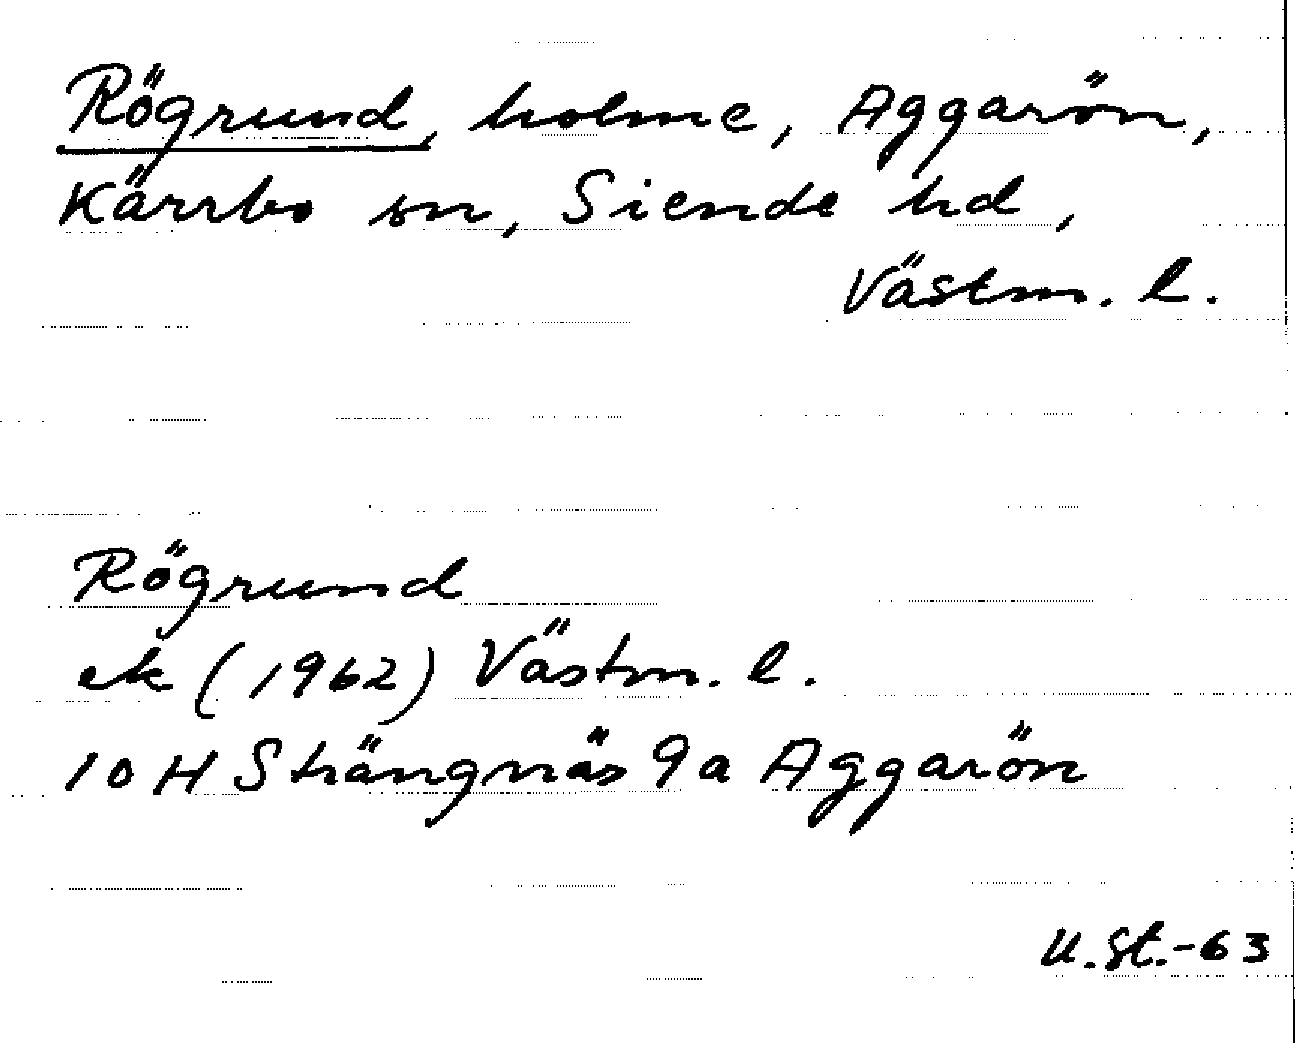 Rögrund, holme, Aggarön,
Kärrbo sn, Siende hd,
Västm. l.
Rögrund
ek (1962) Västm. l.
10 H Strängnäs 9a Aggarön
U.St.-63